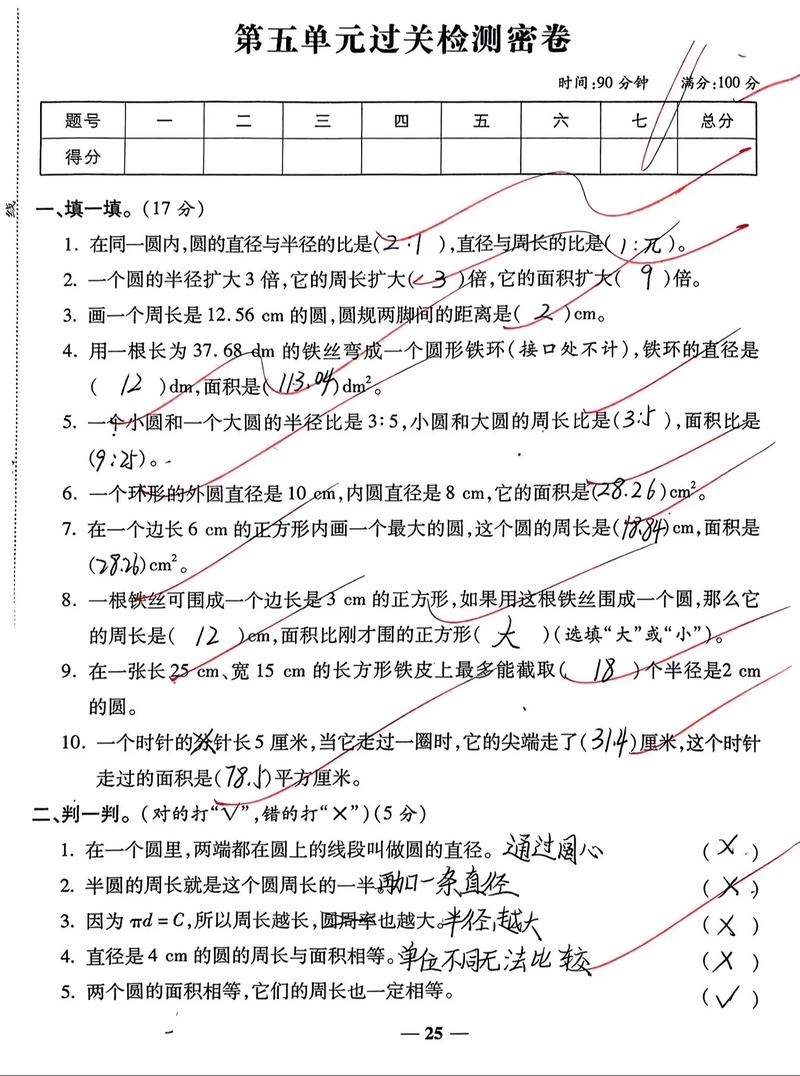 第五单元过关检测密卷
时间:90 分钟 满分:100 分
题号 一 二 三 四 五 六 七 总分
得分
线
一、填一填。(17 分)
1. 在同一圆内,圆的直径与半径的比是(2:1),直径与周长的比是(1:π)。
2. 一个圆的半径扩大 3 倍,它的周长扩大(3)倍,它的面积扩大(9)倍。
3. 画一个周长是 12.56 cm 的圆,圆规两脚间的距离是(2)cm。
4. 用一根长为 37.68 dm 的铁丝弯成一个圆形铁环(接口处不计),铁环的直径是
(12)dm,面积是(113.04)dm²。
5. 一个小圆和一个大圆的半径比是 3∶5,小圆和大圆的周长比是(3:5),面积比是
(9:25)。
6. 一个环形的外圆直径是 10 cm,内圆直径是 8 cm,它的面积是(28.26)cm²。
7. 在一个边长 6 cm 的正方形内画一个最大的圆,这个圆的周长是(18.84)cm,面积是
(28.26)cm²。
8. 一根铁丝可围成一个边长是 3 cm 的正方形,如果用这根铁丝围成一个圆,那么它
的周长是(12)cm,面积比刚才围的正方形(大)(选填“大”或“小”)。
9. 在一张长 25 cm、宽 15 cm 的长方形铁皮上最多能截取(18)个半径是2 cm
的圆。
10. 一个时针的针长 5 厘米,当它走过一圈时,它的尖端走了(31.4)厘米,这个时针
走过的面积是(78.5)平方厘米。
二、判一判。(对的打“√”,错的打“×”)(5 分)
1. 在一个圆里,两端都在圆上的线段叫做圆的直径。通过圆心 (×)
2. 半圆的周长就是这个圆周长的一半。再加一条直径 (×)
3. 因为 πd=C,所以周长越长,圆周率也越大。半径越大 (×)
4. 直径是 4 cm 的圆的周长与面积相等。单位不同无法比较 (×)
5. 两个圆的面积相等,它们的周长也一定相等。 (√)
— 25 —